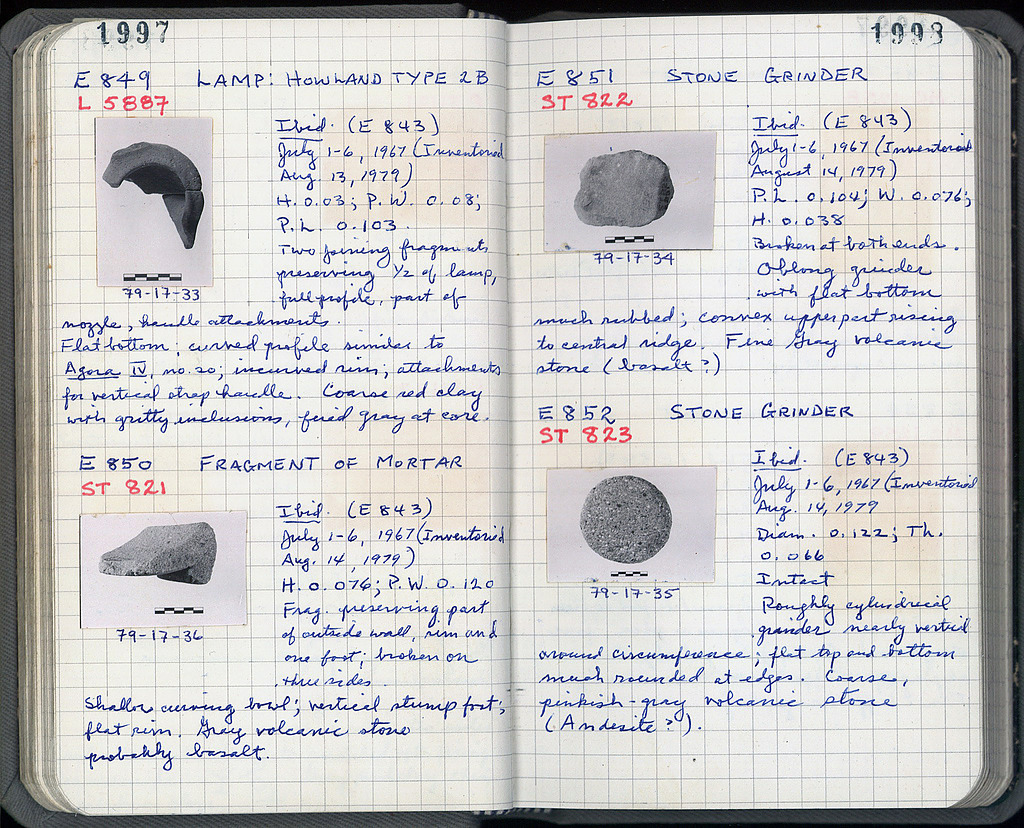 1997
E 849 LAMP: HOWLAND TYPE 2B
L 5887
Ibid. (E 843)
July 1-6, 1967 (Inventoried
Aug. 13, 1979)
H. 0.03; P.W. 0.08;
P.L. 0.103.
Two joining fragments
preserving 1/2 of lamp,
full profile, part of
79-17-33
nozzle, handle attachments.
Flat bottom; curved profile similar to
Agora IV, no. 20; incurved rim; attachments
for vertical strap handle. Coarse red clay
with gritty inclusions, fired gray at core.
E 850 FRAGMENT OF MORTAR
ST 821
Ibid. (E 843)
July 1-6, 1967 (Inventoried
Aug. 14, 1979)
H. 0.076; P.W. 0.120
Frag. preserving part
of outside wall, rim and
one foot; broken on
three sides.
79-17-36
Shallow curving bowl; vertical stump foot;
flat rim. Gray volcanic stone
probably basalt.
1998
E 851 STONE GRINDER
ST 822
Ibid. (E 843)
July 1-6, 1967 (Inventoried
August 14, 1979)
P.L. 0.104; W. 0.076;
H. 0.038
Broken at both ends.
Oblong grinder
with flat bottom
79-17-34
much rubbed; convex upper part rising
to central ridge. Fine Gray volcanic
stone (basalt?)
E 852 STONE GRINDER
ST 823
Ibid. (E 843)
July 1-6, 1967 (Inventoried
Aug. 14, 1979
Diam. 0.122; Th.
0.066
Intact
Roughly cylindrical
grinder nearly vertical
79-17-35
around circumference; flat top and bottom
much rounded at edges. Coarse,
pinkish-gray volcanic stone
(Andesite?).